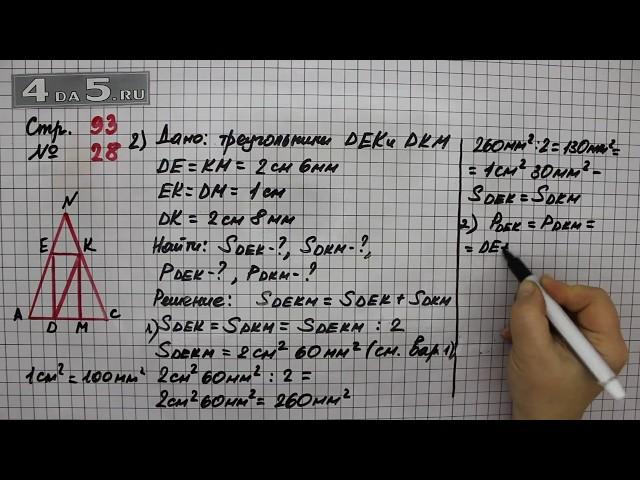 4 DA 5.RU
Стр. 93
№ 28
2) Дано: треугольники DEK и DKM
DE = KM = 2 см 6 мм
EK = DM = 1 см
DK = 2 см 8 мм
Найти: SDEK - ?, SDKM - ?,
PDEK - ?, PDKM - ?
Решение: SDEKM = SDEK + SDKM
1) SDEK = SDKM = SDEKM : 2
SDEKM = 2 см² 60 мм² (см. Вар. 1)
1 см² = 100 мм²
2 см² 60 мм² : 2 =
2 см² 60 мм² = 260 мм²
N
E K
A D M C
260 мм² : 2 = 130 мм² =
= 1 см² 30 мм² -
SDEK = SDKM
2) PDEK = PDKM =
= DE+